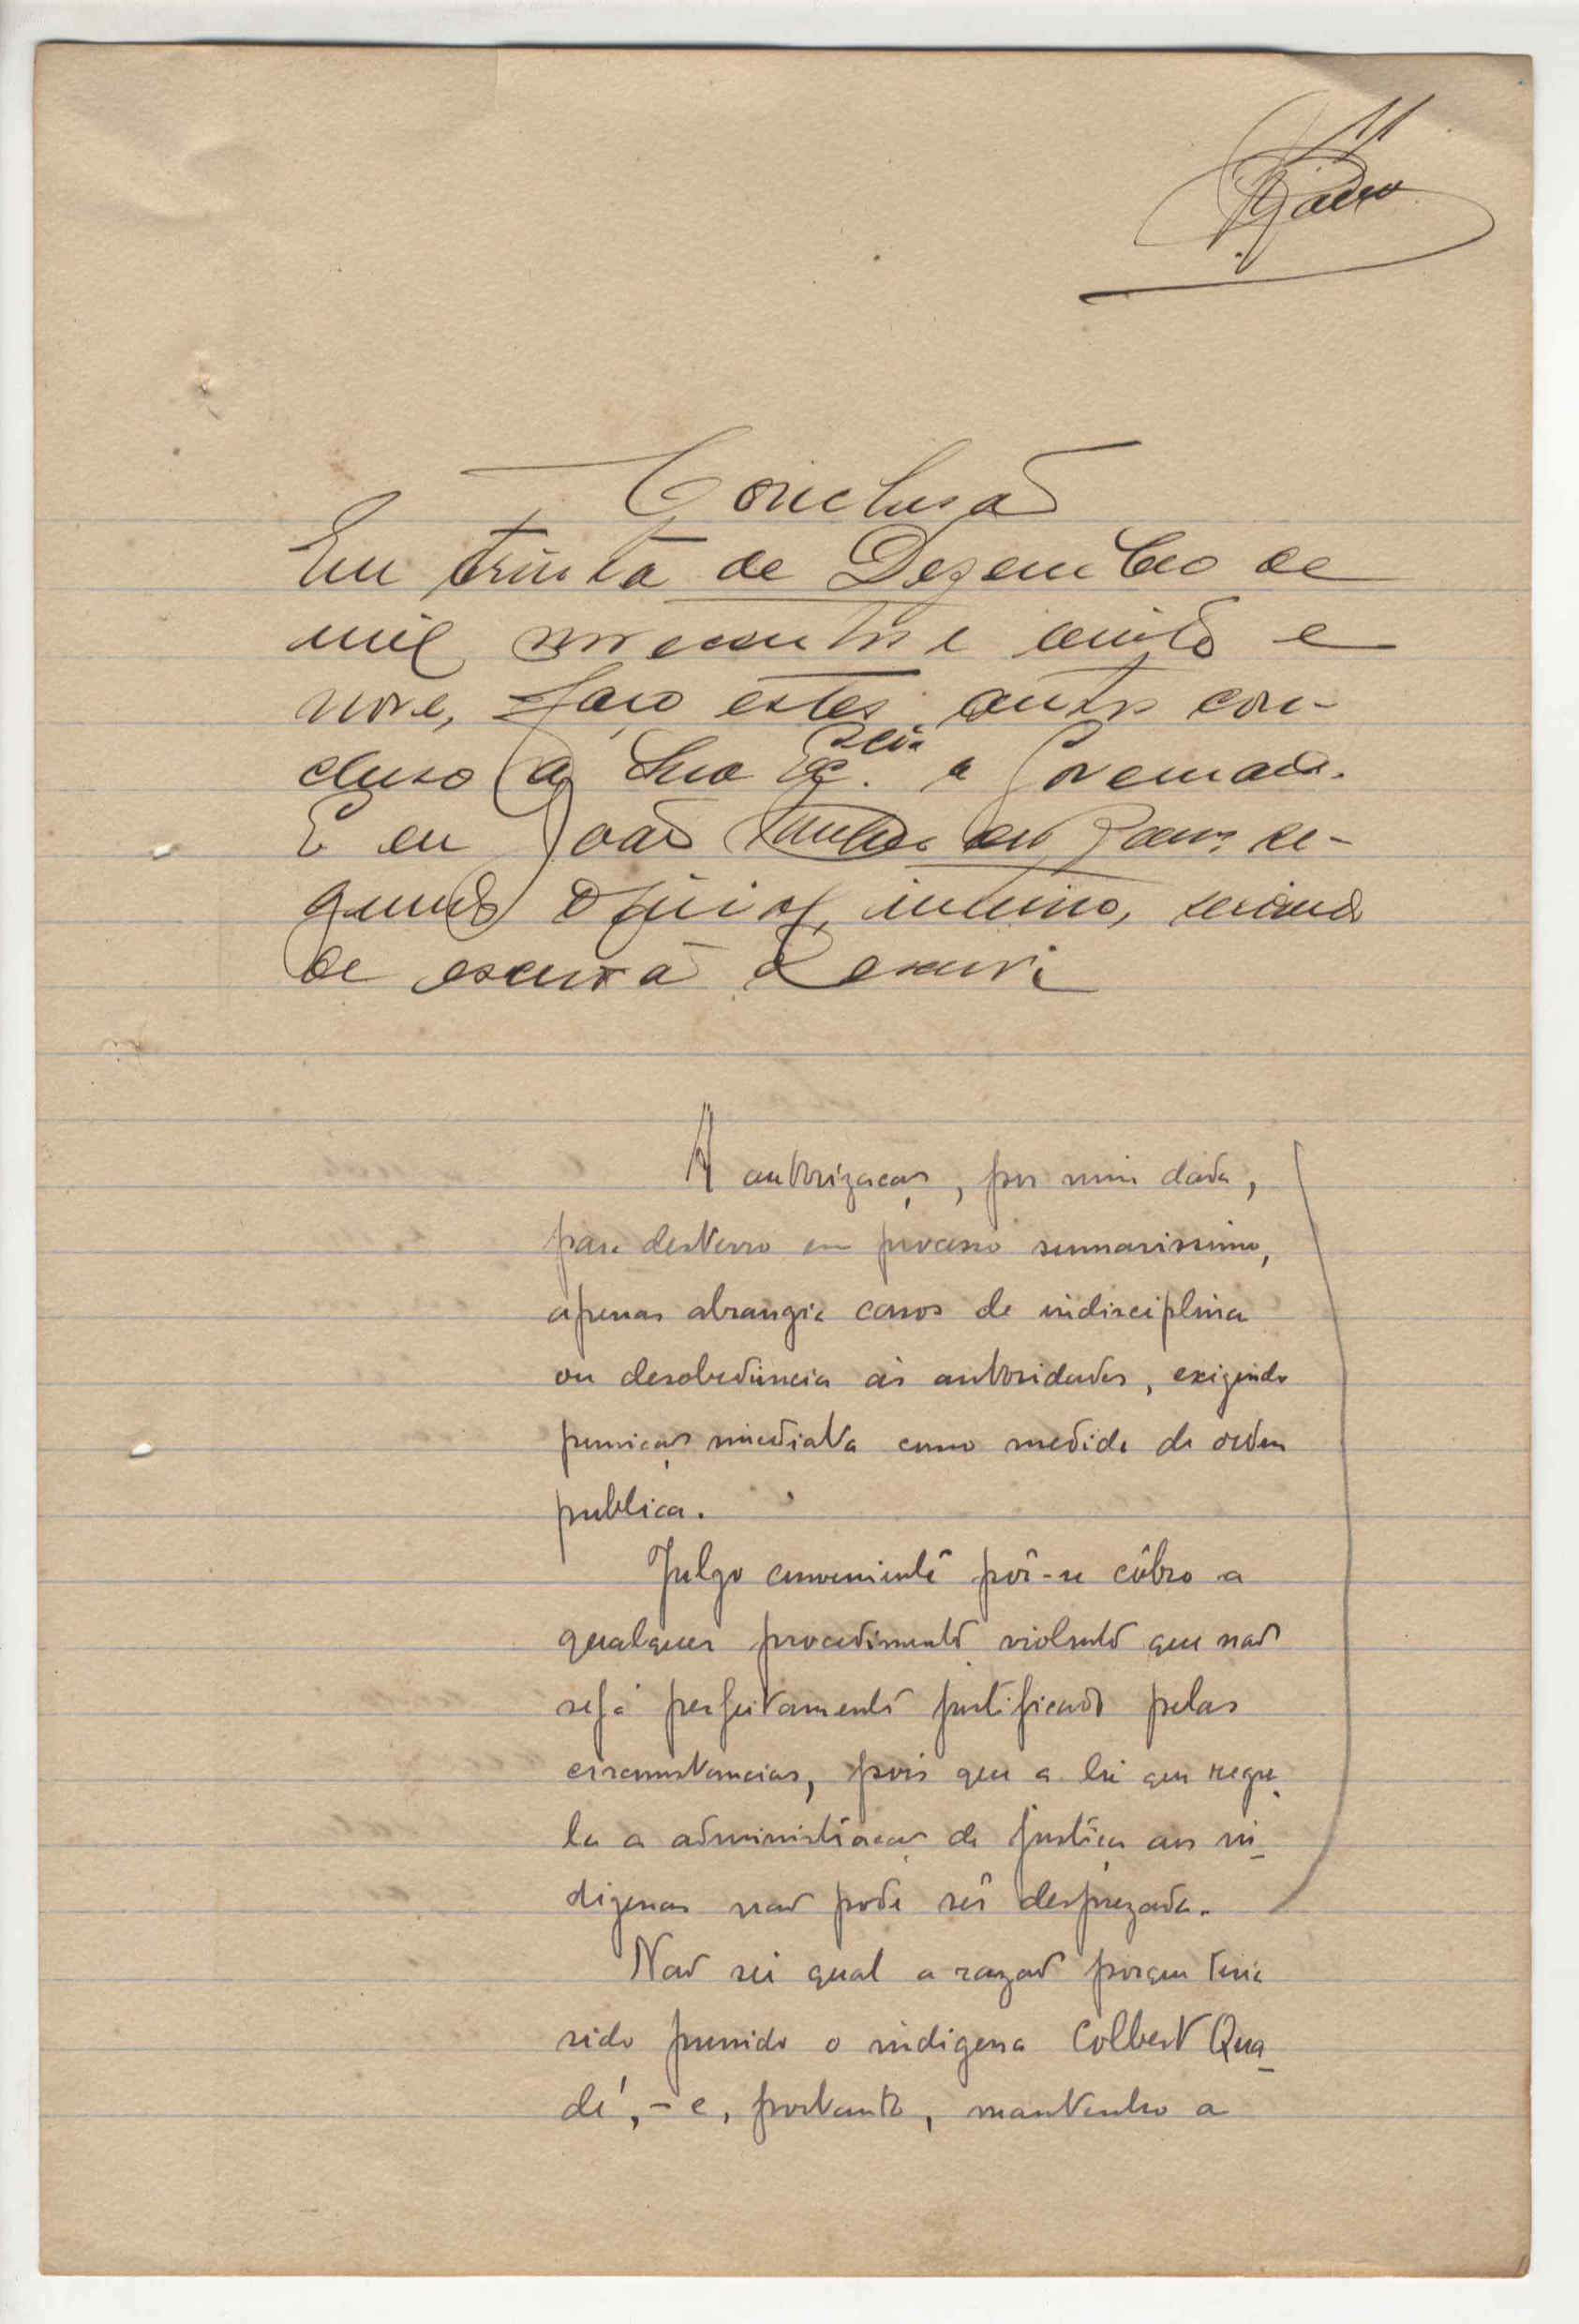 11
Conclusão
Em trinta de Dezembro de
mil novecentos e vinte e
nove, faço estes autos con-
cluso a Sua Excia o Governador.
E eu João de se-
gundo oficial, interino, servindo
de escrivão o escrevi
A autorização, por mim dada,
para desterro em processo summarissimo,
apenas abrangia casos de indisciplina
ou desobediencia ás autoridades, exigindo
punição imediata como medida de ordem
publica.
Julgo conveniente pôr-se côbro a
qualquer procedimento violento que não
seja perfeitamente justificado pelas
circumstancias, pois que a lei que regu-
la a administração da justiça aos in-
digenas não pode ser desprezada.
Não sei qual a razão porque teria
sido punido o indigena Colbert Qua-
dé,-e, portanto, mantenho a